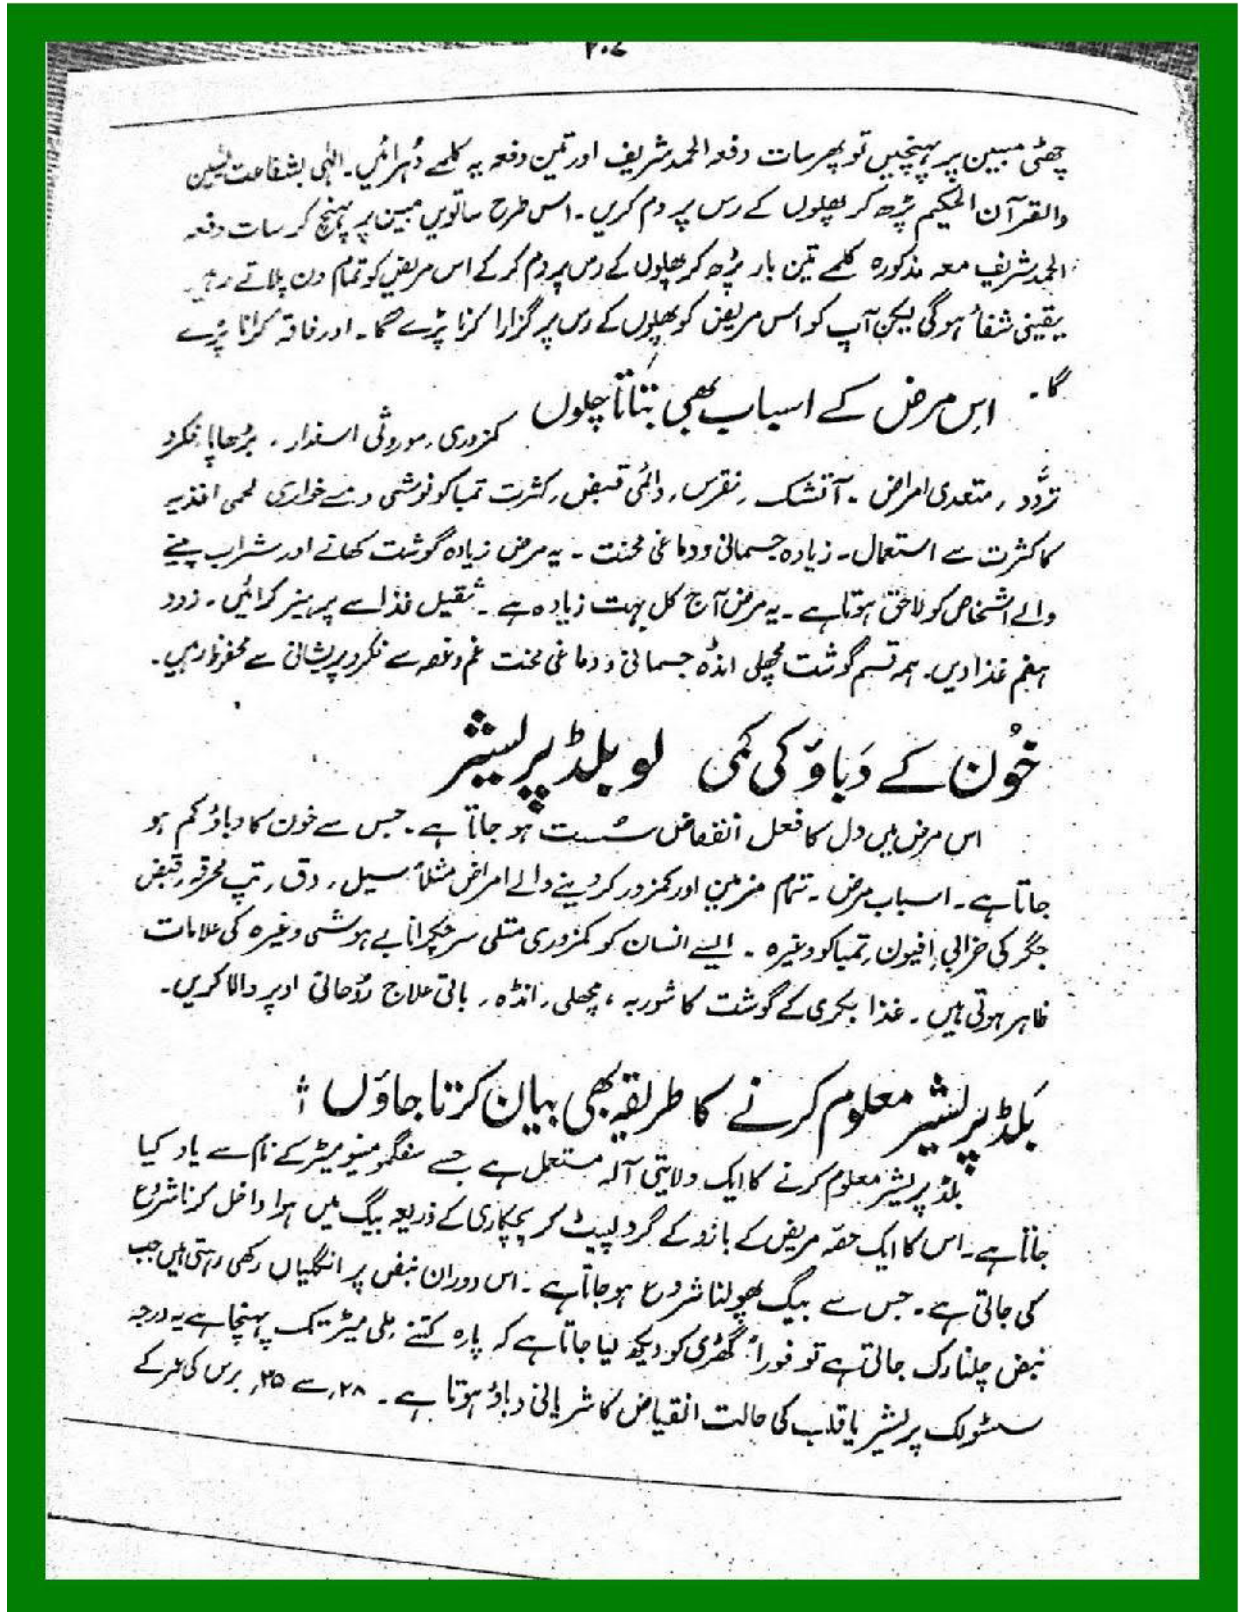 ۲۰۷
چھٹی مبین پر پہنچیں تو پھر سات دفعہ الحمد شریف اور تین دفعہ یہ کلمے دُہرائیں۔ الٰہی بشفاعت یٰسین
والقرآن الحکیم پڑھ کر پھلوں کے رس پر دم کریں۔ اسی طرح ساتویں مبین پر پہنچ کر سات دفعہ
الحمد شریف معہ مذکورہ کلمے تین بار پڑھ کر پھلوں کے رس پر دم کر کے اس مریض کو تمام دن پلاتے رہیں۔
یقینی شفاءً ہوگی لیکن آپ کو اس مریض کو پھلوں کے رس پر گزارا کرنا پڑے گا۔ اور فاقہ کرانا پڑے
گا۔
اِس مرض کے اسباب بھی بتاتا چلوں
کمزوری، موروثی استدار۔ بڑھاپا، فکر و
تردّد، متعدی امراض۔ آتشک، نقرس، دائمی قبض، کثرت تمباکو نوشی و مے خواری لحمی اغذیہ
کا کثرت سے استعمال۔ زیادہ جسمانی و دماغی محنت۔ یہ مرض زیادہ گوشت کھانے اور شراب پینے
والے اشخاص کو لاحق ہوتا ہے۔ یہ مرض آج کل بہت زیادہ ہے۔ ثقیل غذا سے پرہیز کرائیں۔ زود
ہضم غذا دیں۔ ہمہ قسم گوشت مچھلی انڈہ جسمانی و دماغی محنت غم و غصہ سے فکر و پریشانی سے محفوظ رہیں۔
خُون کے دَباوَ کی کمی لو بلڈ پریشر
اس مرض میں دل کا فعل انقعاض سُست ہو جاتا ہے۔ جس سے خون کا دباؤ کم ہو
جاتا ہے۔ اسباب مرض۔ تمام مزمن اور کمزور کر دینے والے امراض مثلاً سیل، دق، تپ محرقہ، قبض
جگر کی خرابی، افیون، تمباکو وغیرہ۔ ایسے انسان کو کمزوری متلی سر چکرانا بے ہوشی وغیرہ کی علامات
ظاہر ہوتی ہیں۔ غذا بکری کے گوشت کا شوربہ، مچھلی، انڈہ، باقی علاج رُوحانی اوپر والا کریں۔
بَلڈ پریشر معلوم کرنے کا طریقہ بھی بیان کرتا جاوَں
بلڈ پریشر معلوم کرنے کا ایک ولایتی آلہ مستعمل ہے جسے سفگمومینو میٹر کے نام سے یاد کیا
جاتا ہے۔ اس کا ایک حصّہ مریض کے بازو کے گرد لپیٹ کر پچکاری کے ذریعہ بیگ میں ہوا داخل کرنا شروع
کی جاتی ہے۔ جس سے بیگ پھولنا شروع ہو جاتا ہے۔ اس دوران نبض پر انگلیاں رکھی رہتی ہیں جب
نبض چلنا رک جاتی ہے تو فوراً گھڑی کو دیکھ لیا جاتا ہے کہ پارہ کتنے ملی میٹر تک پہنچا ہے یہ درجہ
سسٹولک پریشر یا قلب کی حالت انقیاض کا شریانی دباؤ ہوتا ہے۔ ۲۸، سے ۳۵، برس کی عمر کے